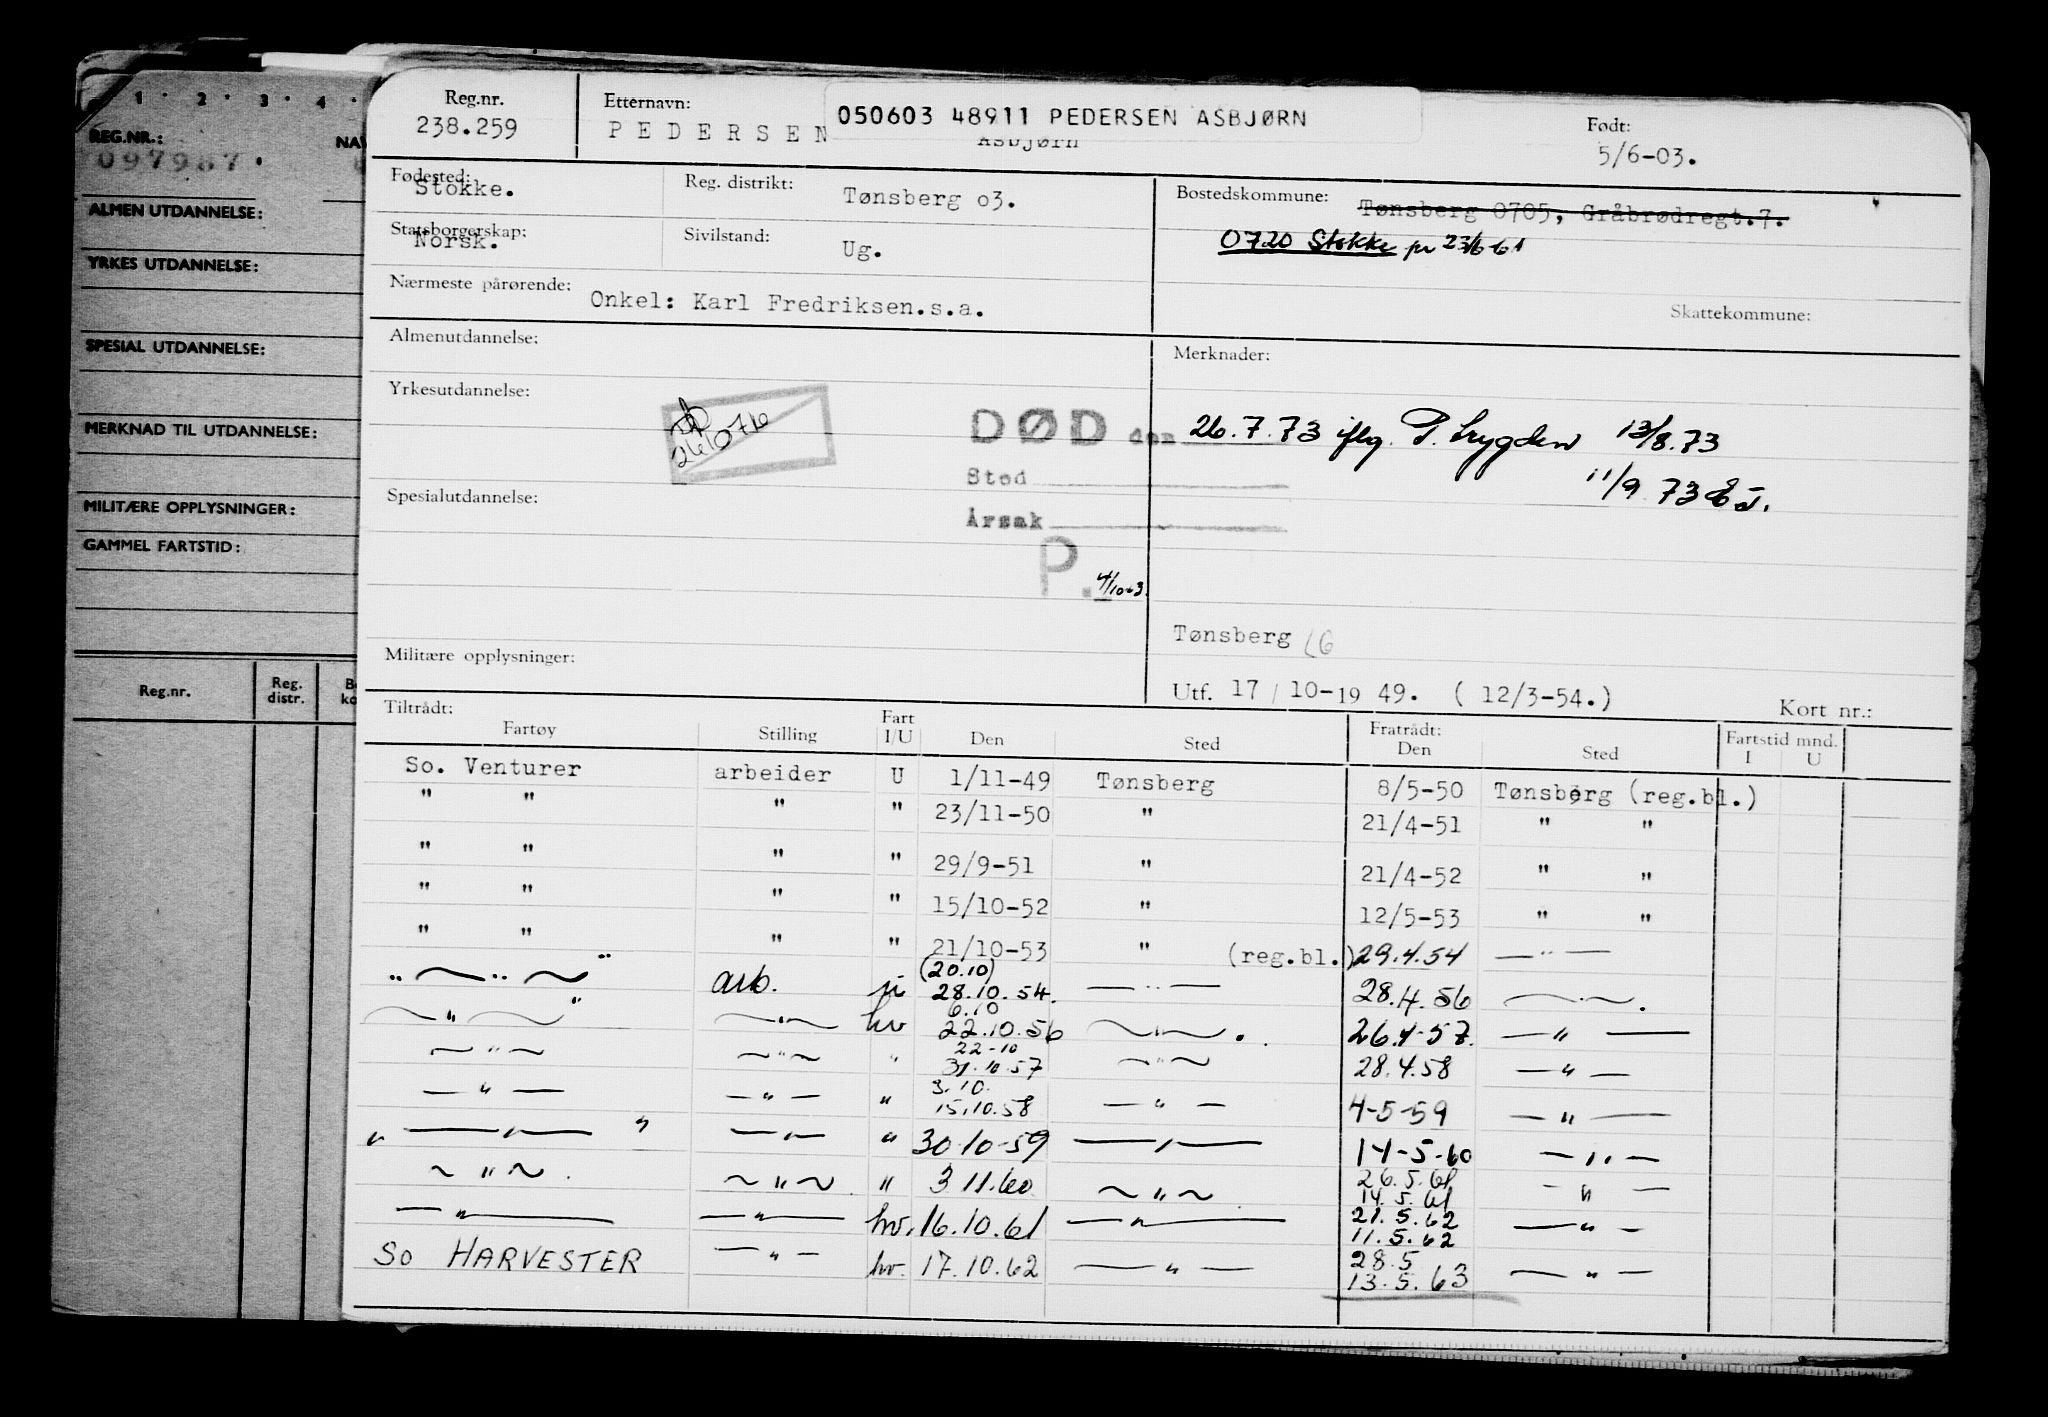 1 · 2 · 3 · 4 ·
REG.NR.:
097987.
ALMEN UTDANNELSE:
YRKES UTDANNELSE:
SPESIAL UTDANNELSE:
MERKNAD TIL UTDANNELSE:
MILITÆRE OPPLYSNINGER:
GAMMEL FARTSTID:
Reg.nr. Reg. distr.
Reg.nr. 238.259
Etternavn: PEDERSEN
050603 48911 PEDERSEN ASBJØRN
Asbjørn
Født: 5/6-03.
Fødested: Stokke.
Reg. distrikt: Tønsberg o3.
Bostedskommune: Tønsberg 0705, Gråbrødregt.7.
0720 Stokke pr 23/6-61
Statsborgerskap: Norsk.
Sivilstand: Ug.
Nærmeste pårørende: Onkel: Karl Fredriksen.s.a.
Skattekommune:
Almenutdannelse:
Merknader:
Yrkesutdannelse:
DØD den 26.7.73 iflg. P. trygden 13/8.73
Sted
11/9 73
Spesialutdannelse:
Årsak
P.
Tønsberg
Militære opplysninger:
Utf. 17 / 10-19 49. ( 12/3-54.)
Kort nr.:
Tiltrådt: Fratrådt: Fartstid mnd.
Fartøy Stilling Fart I/U Den Sted Den Sted I U
So. Venturer arbeider U 1/11-49 Tønsberg 8/5-50 Tønsberg (reg.bl.)
" " " " 23/11-50 " 21/4-51 " "
" " " " 29/9-51 " 21/4-52 " "
" " " " 15/10-52 " 12/5-53 " "
" " " " 21/10-53 " (reg.bl.) 29.4.54 — " —
" — " — " arb. u (20.10) 28.10.54. — " — 28.4.56 — " —.
— " — " — " — hv 6.10 22.10.56 — " —. 26.4-57. — " —
— " — — " — " 22-10 31.10.57 — " — 28.4.58 — " —
— " — — " — " 3.10. 15.10.58 — " — 4-5-59 — " —
" — " — " — " — " 30-10-59 — " — 14-5-60 — " —
— " — — " — " 3.11.60 — " — 26.5.61 14.5.61 — " —
— " — — " — hv. 16.10.61 — " — 21.5.62 11.5.62 — " —
So HARVESTER — " — hv. 17.10.62 — " — 28.5 13.5.63 — " —